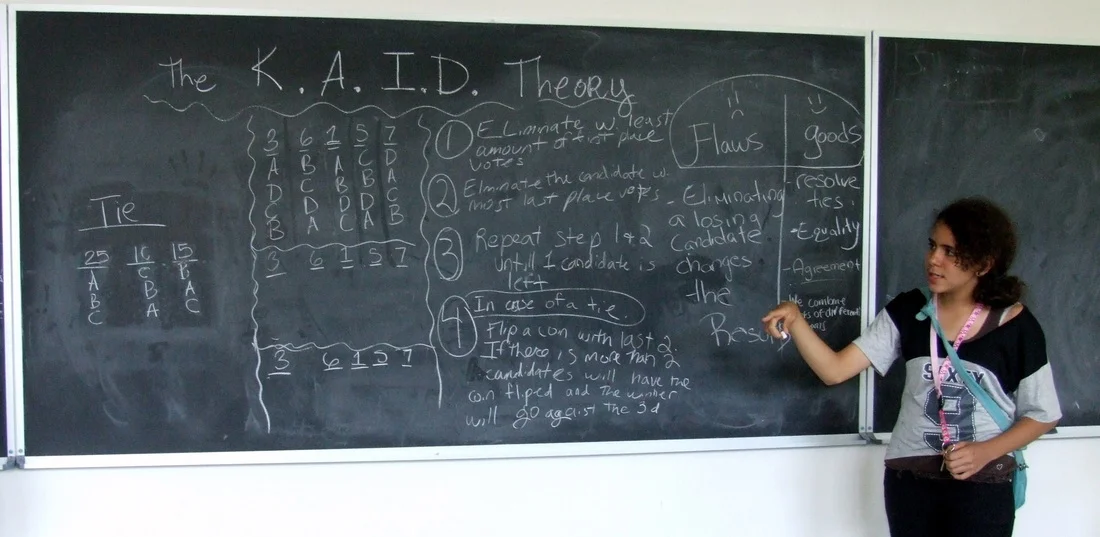 The K. A. I. D. Theory
Tie
25 10 15
A C B
B B A
C A C
3 6 1 5 7
A B A C D
D C B B A
C D D D C
B A C A B
3 6 1 5 7
3 6 1 5 7
1 Eliminate w least
amount of first place
votes
2 Elminate the candidate w
most last place votes
3 Repeat Step 1&2
untill 1 candidate is
left
4 In case of a tie.
Flip a coin with last 2.
If there is more than 2
candidates will have the
coin fliped and the winner
will go against the 3d
Flaws
- Eliminating
a losing
candidate
changes
the
goods
- resolve
ties.
- Equality
- Agreement
We combine